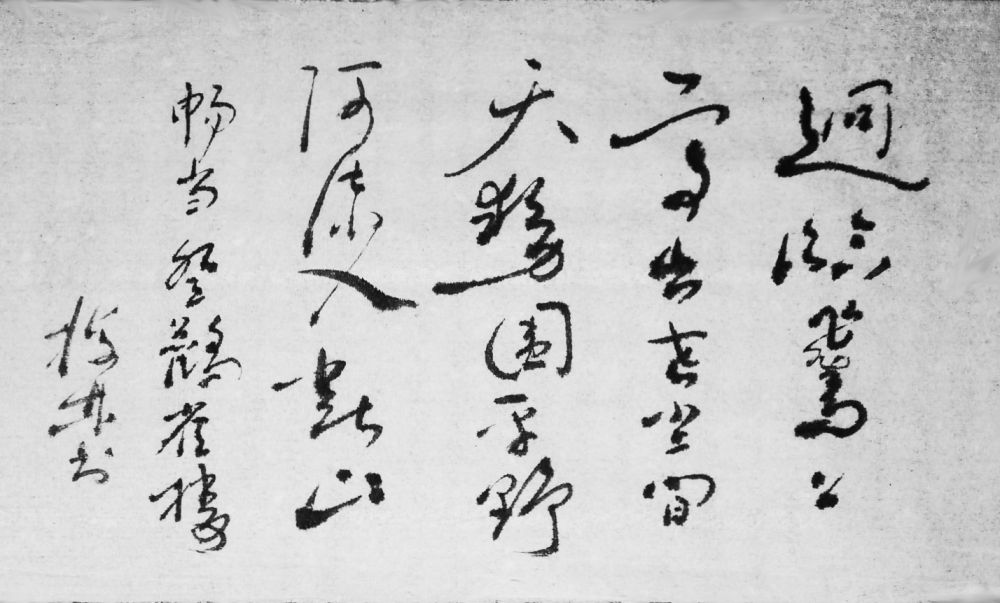 迥临飞鸟上
高出世尘间
天势围平野
河流入断山
畅当登鹳雀楼
书